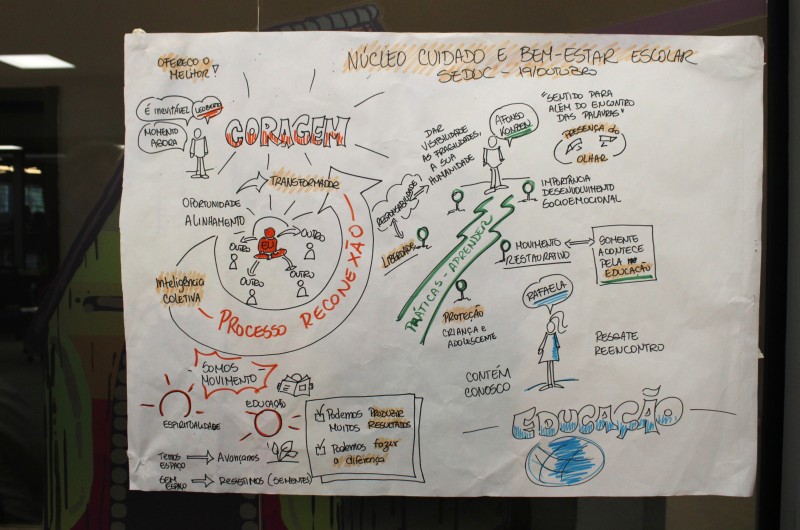 OFEREÇO O
MELHOR
NÚCLEO CUIDADO E BEM-ESTAR ESCOLAR
SEDUC - 19/OUTUBRO
É INEVITÁVEL
MOMENTO
AGORA
CORAGEM
TRANSFORMADOR
OPORTUNIDADE
ALINHAMENTO
EU
OUTRO
OUTRO
OUTRO
OUTRO
INTELIGÊNCIA
COLETIVA
PROCESSO RECONEXÃO
DAR
VISIBILIDADE
AS FRAGILIDADES,
A SUA
HUMANIDADE
RESPONSABILIDADE
LIBERDADE
AFONSO
KONZEN
"SENTIDO PARA
ALÉM DO ENCONTRO
DAS PALAVRAS"
PRESENÇA do
OLHAR
IMPORTÂNCIA
DESENVOLVIMENTO
SOCIOEMOCIONAL
PRÁTICAS - APRENDEIZ
MOVIMENTO
RESTAURATIVO
SOMENTE
ACONTECE
PELA
EDUCAÇÃO
PROTEÇÃO
CRIANÇA E
ADOLESCENTE
RAFAELA
RESGATE
REENCONTRO
CONTÉM
CONOSCO
EDUCAÇÃO
SOMOS
MOVIMENTO
ESPIRITUALIDADE
EDUCAÇÃO
TEMOS
ESPAÇO
Avançamos
SEM
ESPAÇO
RESISTIMOS (SEMENTES)
Podemos PRODUZIR
MUITOS RESULTADOS
Podemos fazer
a diferença